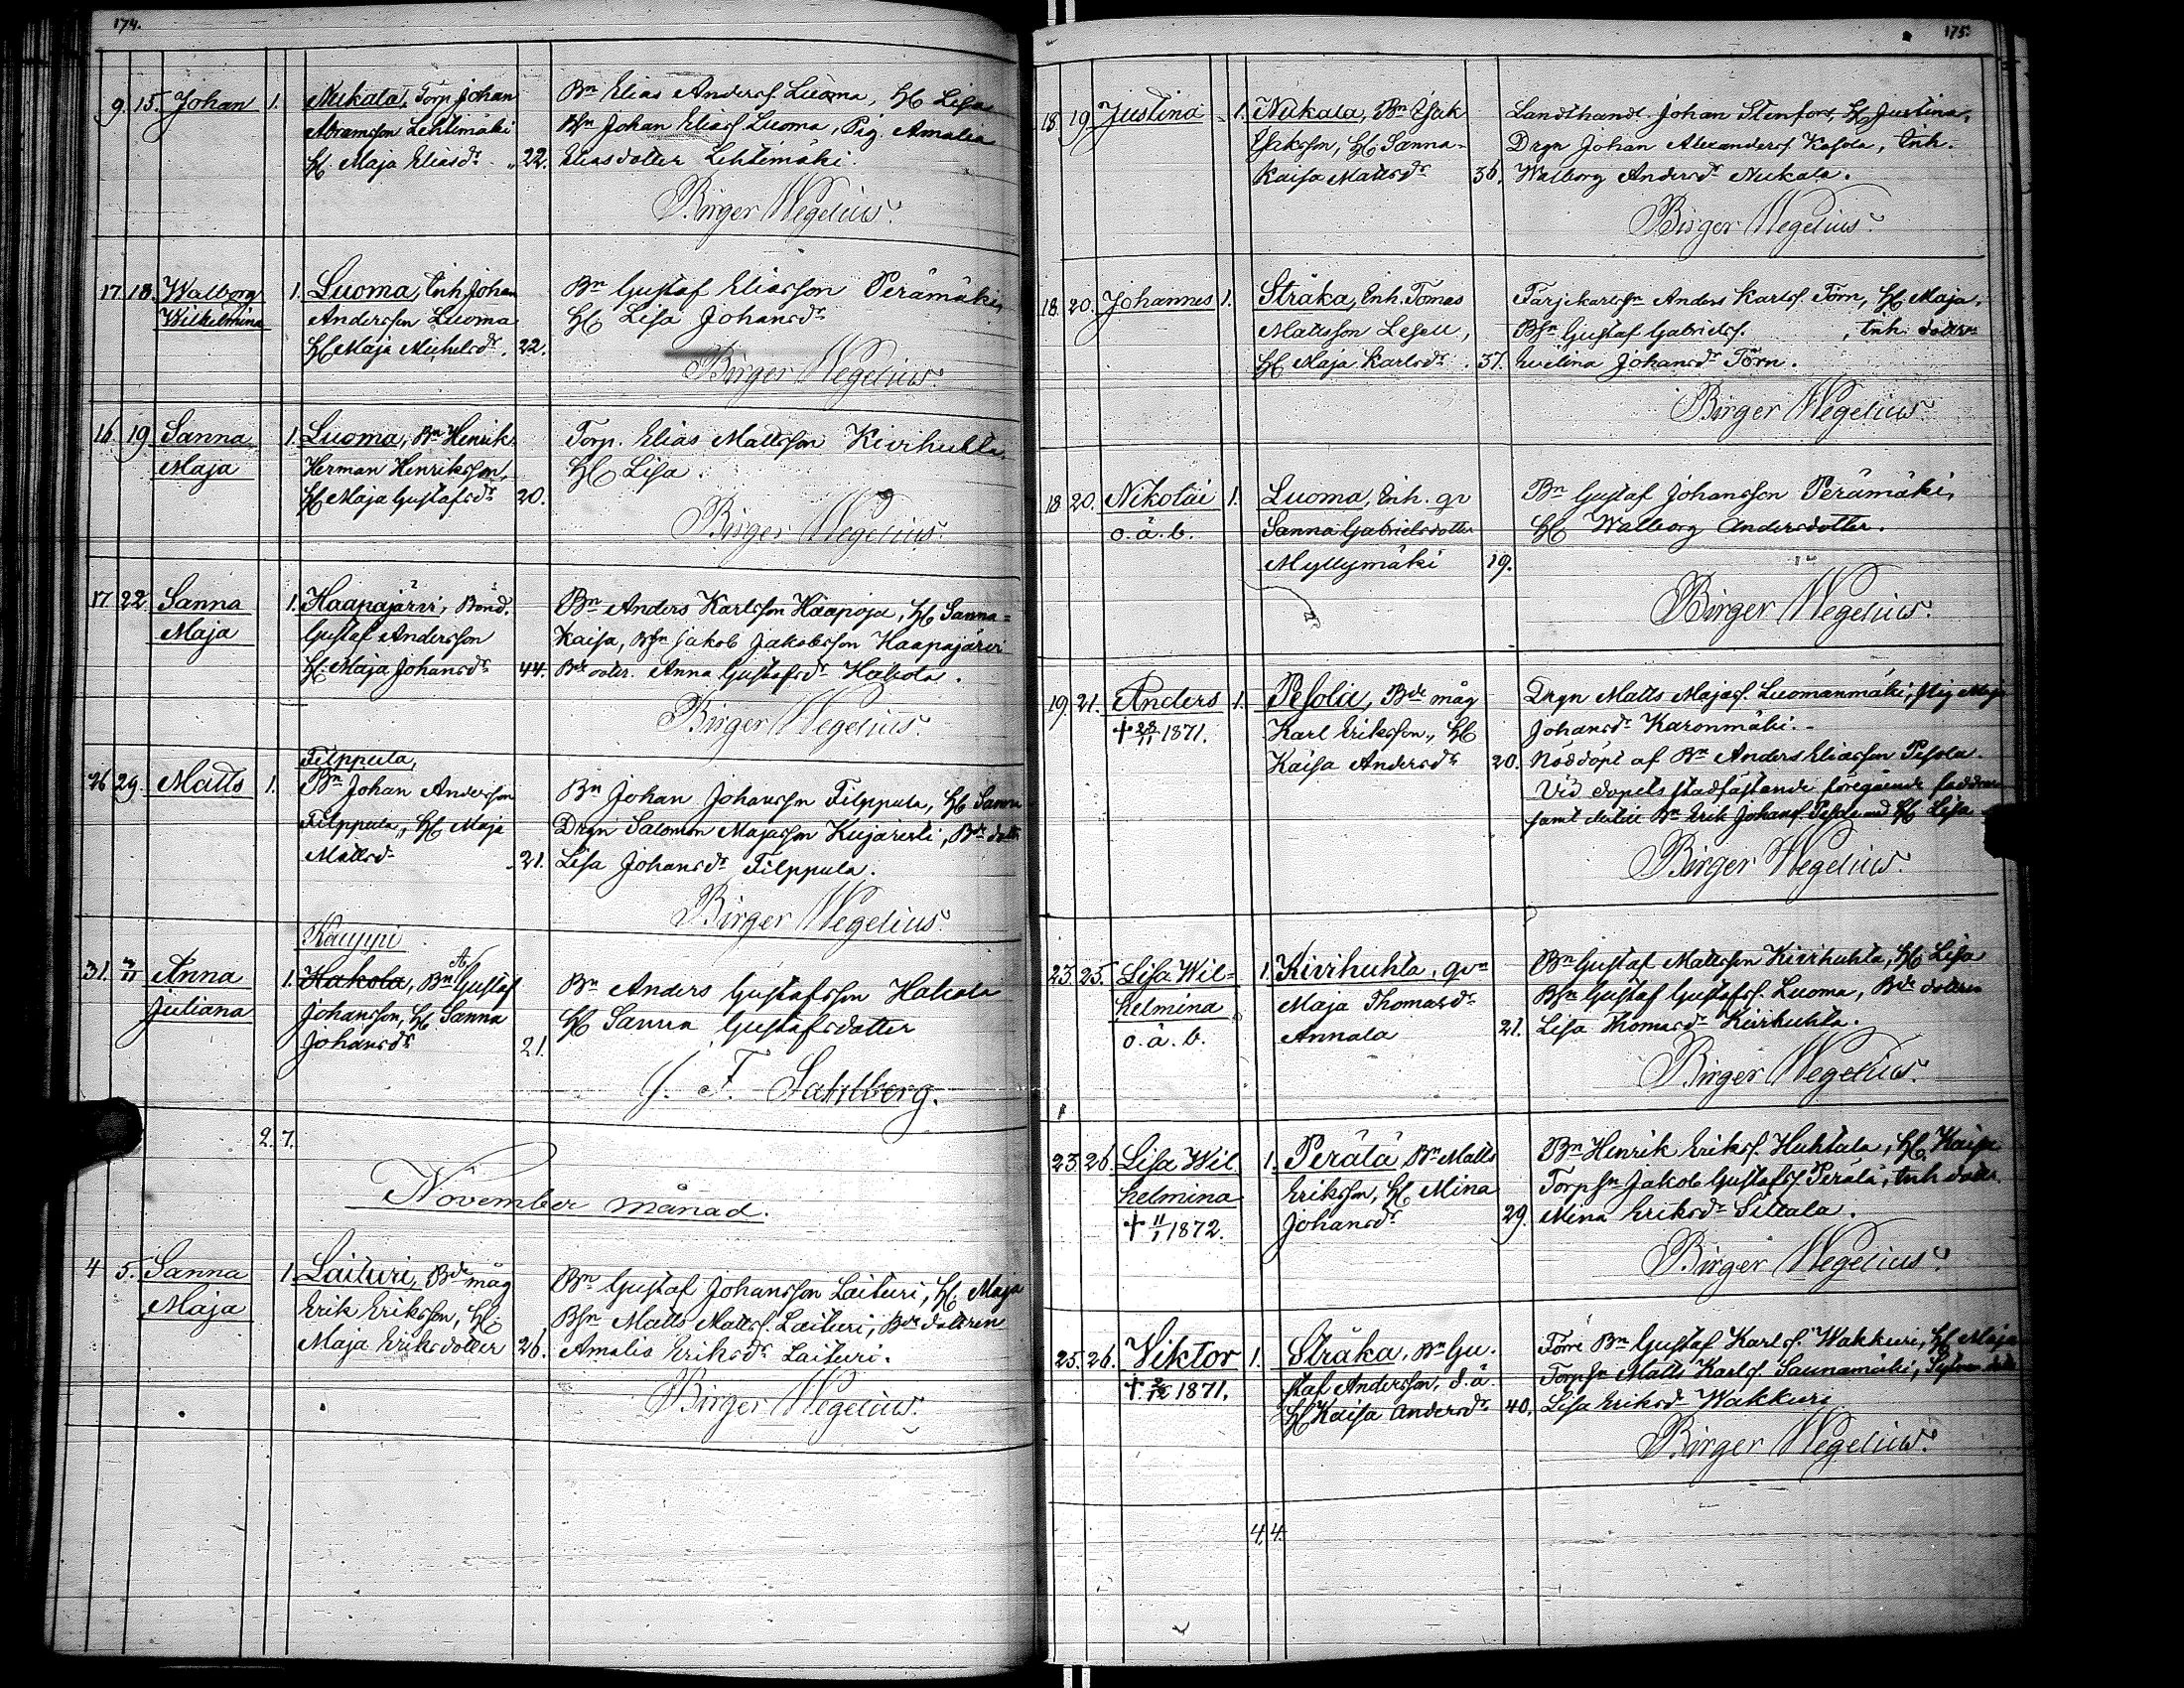 174.
9. 15. Johan 1. Nukala, Torp. Johan
Abramsson Lehtimäki
H. Maja Eliasdr. 22.
Bn Elias Anders. Luoma, H. Lisa
Bsn Johan Eliass. Luoma, Pig. Amalia
Eliasdotter Lehtimäki.
Birger Wegelius.
17 18. Walborg 1. Luoma, Inh. Johan
Wilhelmina Andersson Luoma
H. Maja Michelsdr. 22.
Bn Gustaf Eliasson Perämäki,
H. Lisa Johansdr
Birger Wegelius.
16 19. Sanna 1. Luoma, Bn Henrik
Maja Herman Henriksson,
H. Maja Gustafsdr 20.
Torp. Elias Mattsson Kivihuhta,
H. Lisa.
Birger Wegelius.
17 22. Sanna 1. Haapajärvi, Bond.
Maja Gustaf Andersson
H. Maja Johansdr 44.
Bn Anders Karlsson Haapoja, H. Sanna=
Kaisa, Bsn Jakob Jakobsson Haapajärvi
Bdr dotr. Anna Gustafsdr Hakola.
Birger Wegelius.
26 29. Matts 1. Filppula,
Bn Johan Andersson
Filppula, H. Maja
Mattsdr 21.
Bn Johan Johansson Filppula, H. Sanna
Drgn Salomon Majasson Kujaresti, Bdr dotr
Lisa Johansdr Filppula.
Birger Wegelius.
Kauppi
31. 3/11 Anna 1. Hakola, Bn A. Gustaf
Juliana Johansson, H. Sanna
Johansdr 21.
Bn Anders Gustafsson Hakola
H. Sanna Gustafsdotter
J. F. Sahlberg.
2. 7.
November månad.
4 5. Sanna 1. Laituri, Bde måg
Maja Erik Eriksson, H.
Maja Eriksdotter 26.
Bn Gustaf Johansson Laituri, H. Maja
Bsn Matts Matts. Laituri, Bde dottren
Amalis Eriksdr Laituri.
Birger Wegelius.
175.
18. 19. Justina 1. Nukala, Bn Isak
Isaksson, H. Sanna=
Kaisa Mattsdr 36.
Landthandl. Johan Stenfors, H. Justina,
Drgn Johan Alexanders. Kasola, Inh.
Walborg Andersdr Nukala.
Birger Wegelius.
18. 20. Johannes 1. Stråka, Inh. Tomas
Mattsson Lesell,
H. Maja Karlsdr. 37.
Färjekarlssn Anders Karls. Törn, H. Maja,
Bsn Gustaf Gabriels. , Inh. dottren
Evelina Johansdr Törn.
Birger Wegelius.
18 20. Nikolai 1. Luoma, Inh. qv
o. ä. b. Sanna Gabrielsdotter
Myllymäki 19.
Bn Gustaf Johansson Perämäki,
H. Walborg Andersdotter.
Birger Wegelius.
19. 21. Anders 1. Pesola, Bde måg
† 28/11 1871. Karl Eriksson, H.
Kaisa Andersdr 20.
Drgn Matts Majass. Luomanmäki, Pig Maja
Johansdr Karonmäki.
Nöddöpt af Bn Anders Eliasson Pesola.
Vid dopets stadfästande föregående faddrar
samt dertill Bn Erik Johans. Pesola med H. Lisa
Birger Wegelius.
23. 25. Lisa Wil= 1. Kivihuhta, qvn
helmina Maja Thomasdr
o. ä. b. Annala 21.
Bn Gustaf Mattsson Kivihuhta, H. Lisa
Bsn Gustaf Gustafs. Luoma, Bde dottren
Lisa Thomasdr Kivihuhta.
Birger Wegelius.
23. 26. Lisa Wil 1. Perälä, Bn Matts
helmina Eriksson, H. Mina
† 11/1 1872. Johansdr 29.
Bn Henrik Eriks. Huhtala, H. Kaisa
Torpsn Jakob Gustafs. Perälä, Inh dotr
Mina Eriksdr Siltala.
Birger Wegelius.
25. 26. Viktor 1. Stråka, Bn Gu.
† 2/12 1871. staf Andersson, d. ä.
H. Kaisa Andersdr 40.
Förre Bn Gustaf Karls. Wakkuri, H. Maja
Torpsn Matts Karls. Saunamäki,
Lisa Eriksdr Wakkuri
Birger Wegelius.
4. 4.